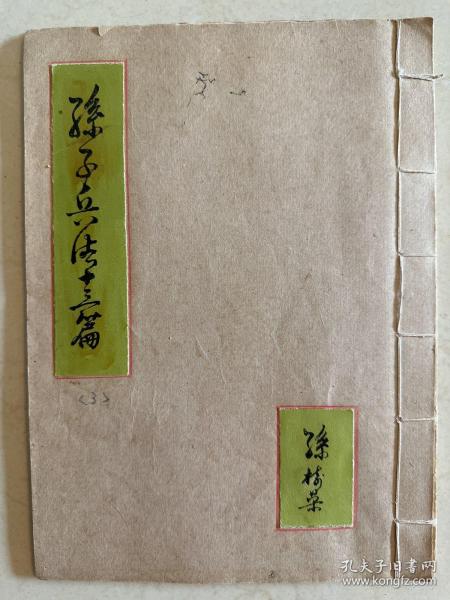 孫子兵法十三篇
<3>
孫樹榮
孔夫子旧书网
www.kongfz.com